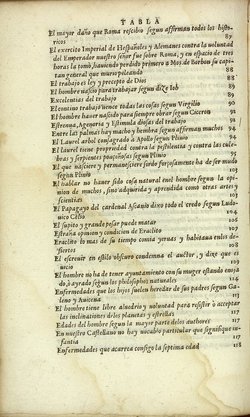 TABLA
El mayor daño que Roma rescibio segun affirman todos los histo-
ricos 89
El exercito Imperial de Hespañoles y Alemanes contra la voluntad
del Emperador nuestro señor fue sobre Roma, y en espacio de tres
horas la tomò, haviendo perdido primero a Mos de Borbon su capi-
tan general que murio peleando
El trabajo es ley y precepto de Dios
El hombre nascio para trabajar segun dize Iob
Excelentias del trabajo
El continuo trabajo vence todas las cosas segun Virgilio 90
El hombre haver nascido para siempre obrar segun Ciceron
Estrenua, Agenoria y Estimula diosas del trabajo
Entre las palmas hay macho y hembra segun affirman muchos 94
El Laurel arbol consagrado a Apollo segun Plinio
El laurel tiene propriedad contra la pestilentia y contra las cule-
bras y serpientes ponçoñosas segun Plinio
El que nasciere y permanesciere sordo forçosamente ha de ser mudo
segun Plinio
El hablar no haver sido cosa natural en el hombre segun la opi-
nion de muchos, sino adquerida y aprendida como otras artes y
scientias
El Papagayo del cardenal Ascanio dixo todo el credo segun Ludo-
vico Celio
El supito y grande pesar puede matar
Estraña opinion y condicion de Eraclito
Eraclito lo mas de su tiempo comia yervas y habitava en los de-
siertos 108
El escrevir en estilo obscuro condenna el auctor, y dize que es
vicio
El hombre no ha de tener ayuntamiento con su muger estando enoja-
do, o ayrado segun los philosophos naturales
Enfermedades que los hijos suelen heredar de sus padres segun Ga-
leno y Avicena
El hombre tiene libre alvedrio y voluntad para resistir o acceptar
las inclinationes de los planetas y estrellas
Edades del hombre segun la mayor parte de los authores
En nuestro Castellano no hay vocablo particular que signifique in-
fantia
Enfermedades que acarrea consigo la septima edad 118